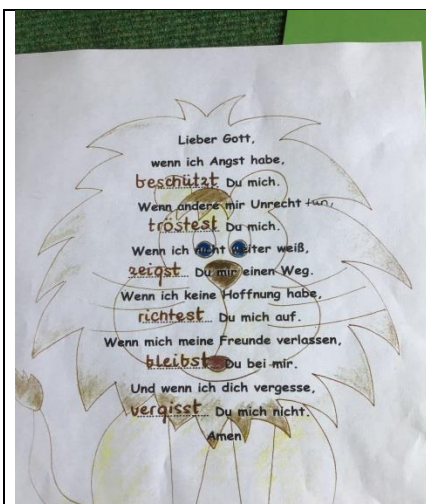 Lieber Gott,
wenn ich Angst habe,
beschützt Du mich.
Wenn andere mir Unrecht tun,
tröstest Du mich.
Wenn ich nicht weiter weiß,
zeigst Du mir einen Weg.
Wenn ich keine Hoffnung habe,
richtest Du mich auf.
Wenn mich meine Freunde verlassen,
bleibst Du bei mir.
Und wenn ich dich vergesse,
vergisst Du mich nicht.
Amen